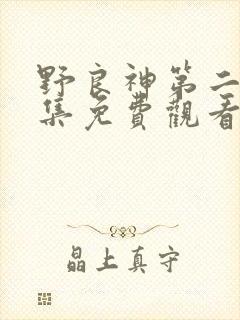 野良神第二
集免費觀看
晶上真守